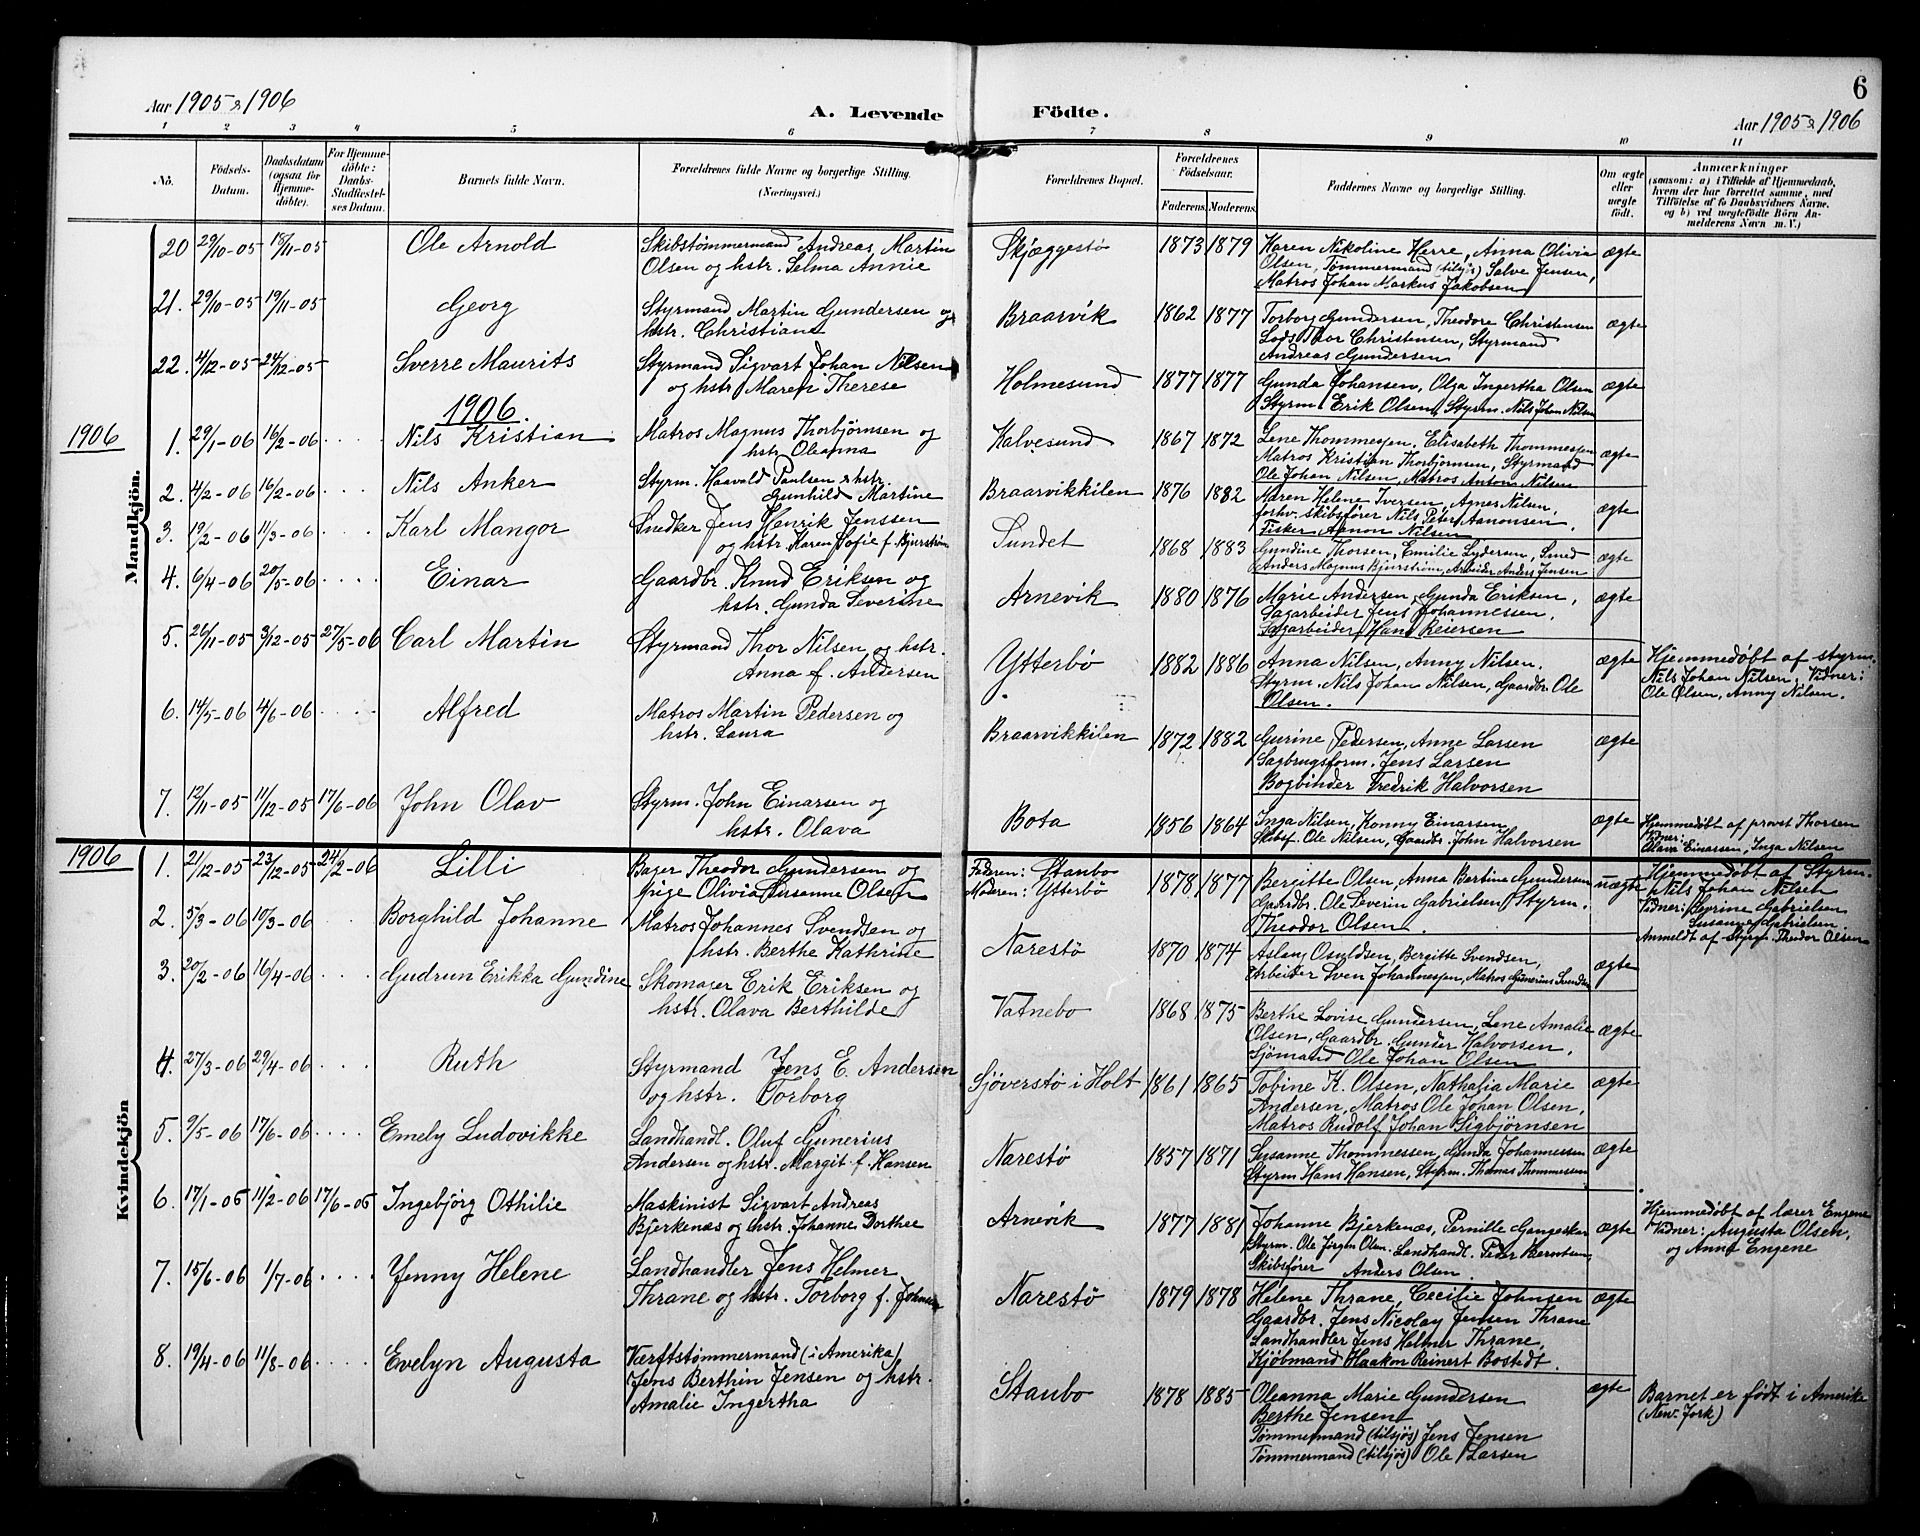 6
Aar 1905 & 1906 A. Levende Födte. Aar 1905 & 1906
1 2 3 4 5 6 7 8 9 10 11
No. Födsels-Datum. Daabsdatum (ogsaa for Hjemme-döbte). For Hjemme-döbte: Daabs-Stadfæstel-ses Datum. Barnets fulde Navn. Forældrenes fulde Navne og borgerlige Stilling. (Næringsvei.) Forældrenes Bopæl. Forældrenes Födselsaar. Faderens. Moderens. Faddernes Navne og borgerlige Stilling. Om ægte eller uægte födt. Anmærkninger
(saasom: a) i Tilfælde af Hjemmedaab,
hvem der har forrettet samme, med
Tilföielse af to Daabsvidners Navne,
og b) ved uægtefödte Börn An-
melderens Navn m. V.)
Mandkjön.
20 29/10-05 15/11-05 Ole Arnold Skibstømmermand Andreas Martin
Olsen og hstr. Selma Annie
Skjæggestø 1873 1879 Karen Nikoline Herre, Anna Olivia
Olsen, Tømmermand (tilsjøs) Salve Jensen,
Matros Johan Markus Jakobsen ægte
21. 29/10-05 19/11-05 Georg Styrmand Martin Gundersen og
hstr. Christiane
Braarvik 1862 1877 Torborg Gundersen, Theodore Christensen
Lods Thor Christensen, Styrmand
Andreas Gundersen ægte
22. 4/12-05 24/12-05 Sverre Maurits Styrmand Sigvart Johan Nilsen
og hstr. Maren Therese
Holmesund 1877 1877 Gunda Johansen, Olga Ingertha Olsen
Styrm. Erik Olsen, Styrm. Nils Johan Nilsen ægte
1906.
1906
1. 29/1-06 16/2-06 Nils Kristian Matros Magnus Thorbjørnsen og
hstr. Oleanna
Kalvesund 1867 1872 Lene Thommesen, Elisabeth Thommesen
Matros Kristian Thorbjørnsen, Styrmand
Ole Johan Nilsen, Matros Anton Nilsen ægte
2. 4/2-06 16/2-06 Nils Anker Styrm. Haavald Paulsen & hstr.
Gunhild Martine
Braarvikkilen 1876 1882 Maren Helene Iversen, Agnes Nilsen,
forhv. skibsfører Nils Peter Aanonsen,
Fisker Aanon Nilsen ægte
3. 19/2-06 11/3-06 Karl Mangor Snedker Jens Henrik Jenssen
og hstr. Karen Sofie f. Bjurstrøm
Sundet 1868 1883 Gundine Thorsen, Emilie Sydersen, Smed
Anders Magnus Bjurstrøm, Arbeider Anders Jensen ægte
4. 6/4-06 20/5-06 Einar Gaardbr. Knud Eriksen og
hstr. Gunda Severine
Arnevik 1880 1876 Marie Andersen, Gunda Eriksen,
Sagarbeider Jens Johannessen,
Sagarbeider Hans Reiersen ægte
5. 26/11-05 3/12-05 27/5-06 Carl Martin Styrmand Thor Nilsen og hstr.
Anna f. Andersen
Ytterbø 1882 1886 Anna Nilsen, Anny Nilsen.
Styrm. Nils Johan Nilsen, Gaardbr. Ole
Olsen. ægte Hjemmedøbt af styrm.
Nils Johan Nilsen, Vidner:
Ole Olsen, Anny Nilsen.
6. 14/5-06 4/6-06 Alfred Matros Martin Pedersen og
hstr. Laura
Braarvikkilen 1872 1882 Gurine Pedersen, Anne Larsen
Sagbrugsform. Jens Larsen
Bogbinder Fredrik Halvorsen ægte
7. 12/11-05 11/12-05 17/6-06 John Olav Styrm. John Einarsen og
hstr. Olava
Bota 1856 1864 Inga Nilsen, Konny Einarsen
Skibsf. Ole Nilsen, Gaardbr. John Halvorsen ægte Hjemmedøbt af provst Thorsen
Vidner:
Olava Einarsen, Inga Nilsen
1906
Kvindekjön
1. 21/12-05 23/12-05 24/2-06 Lilli Bager Theodor Gundersen og
Pige Olivia Susanne Olsen
Faderen: Staubo
Moderen: Ytterbø 1878 1877 Bergitte Olsen, Anna Bertine Gundersen
Gaardbr. Ole Severin Gabrielsen, Styrm.
Theodor Olsen. uægte Hjemmedøbt af Styrm.
Nils Johan Nilsen
Vidner: Gyrine Gabrielsen
Susanne Gabrielsen.
Anmeldt af Styrm. Theodor Olsen
2. 5/3-06 10/3-06 Borghild Johanne Matros Johannes Svendsen og
hstr. Berthe Kathrine
Narestø 1870 1874 Aslaug Osuldsen, Bergitte Svendsen,
Arbeider Sven Johannessen, Matros Gunerius Svendsen ægte
3. 20/2-06 16/4-06 Gudrun Erikka Gundine Skomager Erik Eriksen og
hstr. Olava Berthilde
Vatnebo 1868 1875 Berthe Lovise Gundersen, Lene Amalie
Olsen, Gaardbr. Gunder Halvorsen,
Sjømand Ole Johan Olsen ægte
4. 27/3-06 29/4-06 Ruth Styrmand Jens E. Andersen
og hstr. Torborg
Sjöverstø i Holt 1861 1865 Tobine K. Olsen, Nathalia Marie
Andersen, Matros Ole Johan Olsen,
Matros Rudolf Johan Sigbjørnsen ægte
5. 9/5-06 17/6-06 Emely Ludovikke Landhandl. Oluf Gunerius
Andersen og hstr. Margit f. Hansen
Narestø 1857 1871 Susanne Thommessen, Gunda Johannessen
Styrm Hans Hansen, Styrm. Thomas Thommesen ægte
6. 17/1-06 11/2-06 17/6-06 Ingebjörg Othilie Maskinist Sigvart Andreas
Bjerkenæs og hstr. Johanne Dorthee
Arnevik 1877 1881 Johanne Bjerkenæs, Pernille Gangeskar
Styrm. Ole Jørgen Olsen. Landhandl. Peder Berntsen,
Skibsfører Anders Olsen. ægte Hjemmedøbt af lærer Engene
Vidner: Augusta Olsen,
og Anna Engene
7. 15/6-06 1/7-06 Jenny Helene Landhandler Jens Helmer
Thrane og hstr. Torborg f. Johnsen
Narestø 1879 1878 Helene Thrane, Cecilie Johnsen
Gaardbr. Jens Nicolay Jensen Thrane
Landhandler Jens Helmer Thrane,
Kjøbmand Haakon Reinert Bostedt. ægte
8. 19/4-06 11/8-06 Evelyn Augusta Værftstømmermand (i Amerika)
Jens Berthin Jensen og hstr.
Amalie Ingertha
Staubo 1878 1885 Oleanna Marie Gundersen
Berthe Jensen
Tømmermand (tilsjøs) Jens Jensen
Tømmermand (tilsjøs) Ole Larsen ægte Barnet er født i Amerika
(New. York)